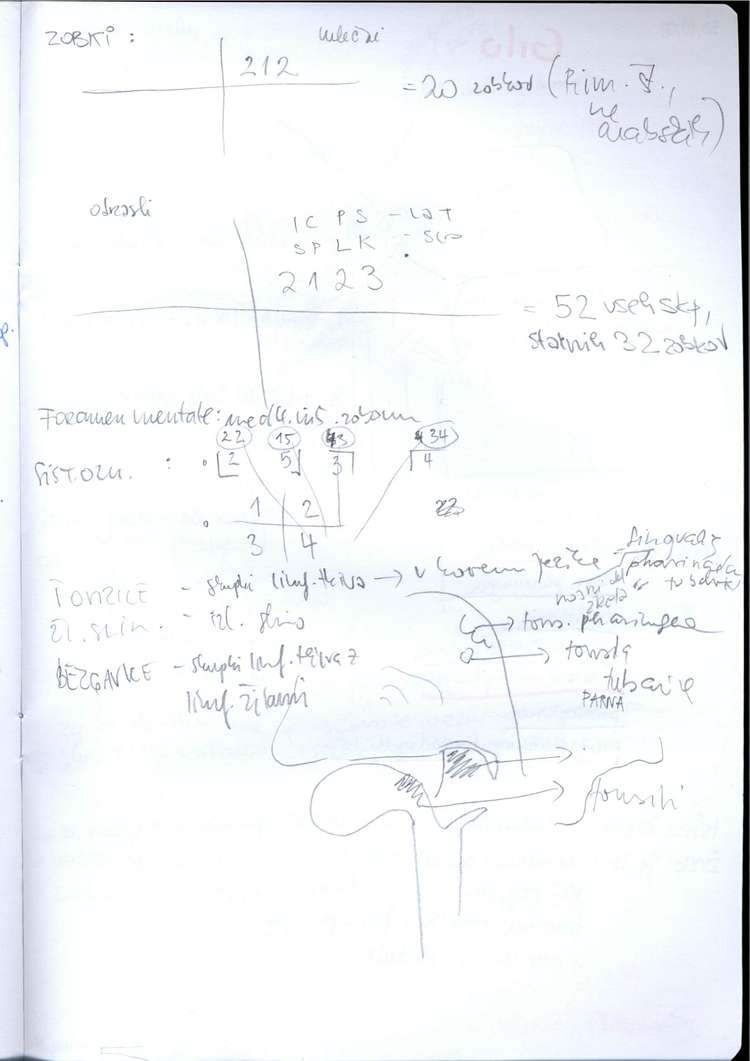 ZOBKI : mlečni
212
= 20 zobkov (Rim. Š.,
ne
arabskih)
odrasli
I C P S - LAT
S P L K - SLO
2 1 2 3
= 52 vseh skp,
stalnih 32 zobkov
Foramen mentale: med 4. in 5. zobom
22 15 43 34
SISTEM : 2 5 3 4
1 2
3 4
TONZILE - skupki limf. tkiva → v korenu jezika - lingualz
pharingela
tubarie
ŽL. SLIN. - izl. slino
→ tons. pharingea
BEZGAVKE - skupki limf. tkiva z
limf. žilami
→ tonsila
tubarie
PARNA
tonsili